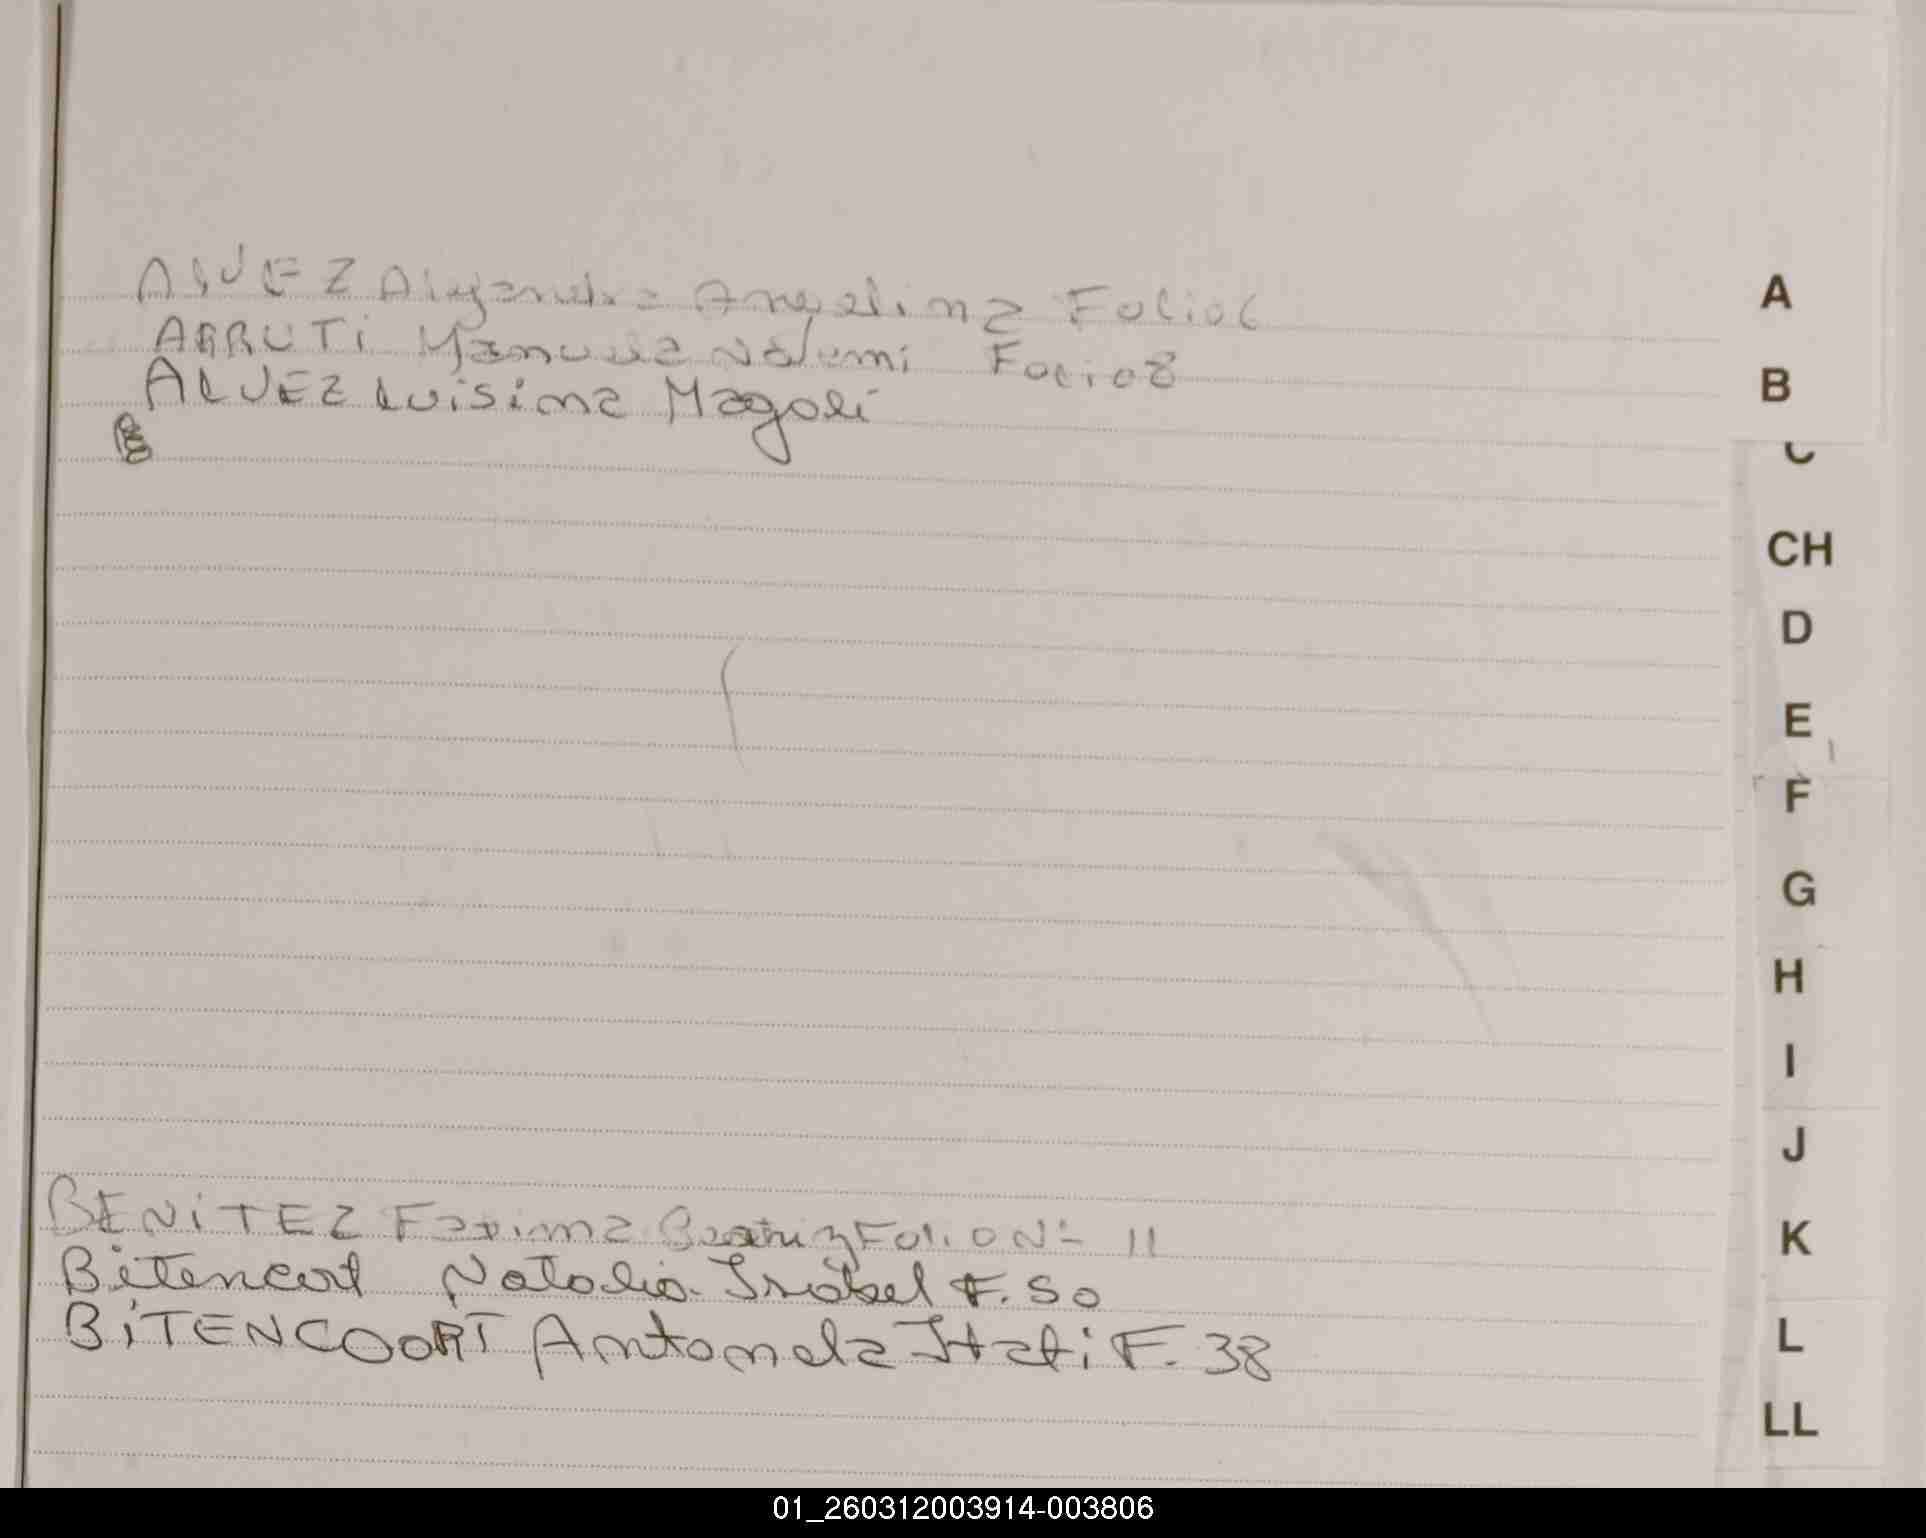 ALVEZ Alejandra Angelina Folio 6
ARRUTi Manuela Noemi Folio 8
ALVEZ Luisina Magali
BENiTEZ Fatima Beatriz Folio Nº 11
Bitencort Natalia Isabel F. 50
BiTENCOORT Antonela Itati F. 38
A
B
C
CH
D
E
F
G
H
I
J
K
L
LL
01_260312003914-003806